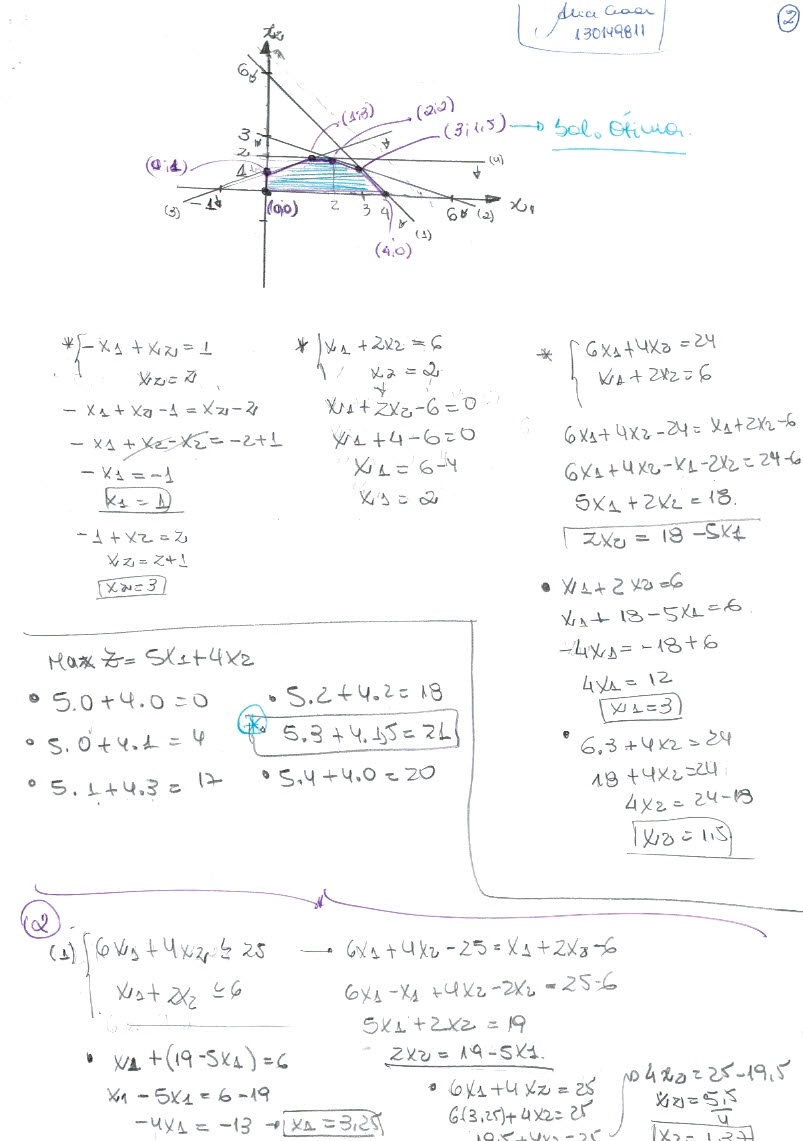 130149811
2
x₂
6
3
2
1
(1;3)
(2;2)
(3;1,5) → Sol. Ótima.
(0;1)
(4)
(3)
-1
(0;0)
2
3
4
6
(2)
x₁
(1)
(4;0)
* { -x₁ + x₂ = 1
x₂ = 2
-x₁ + x₂ - 1 = x₂ - 2
-x₁ + x₂ - x₂ = -2+1
-x₁ = -1
x₁ = 1
-1 + x₂ = 2
x₂ = 2+1
x₂ = 3
* { x₁ + 2x₂ = 6
x₂ = 2
x₁ + 2x₂ - 6 = 0
x₁ + 4 - 6 = 0
x₁ = 6-4
x₁ = 2
* { 6x₁ + 4x₂ = 24
x₁ + 2x₂ = 6
6x₁ + 4x₂ - 24 = x₁ + 2x₂ - 6
6x₁ + 4x₂ - x₁ - 2x₂ = 24-6
5x₁ + 2x₂ = 18.
2x₂ = 18 - 5x₁
• x₁ + 2x₂ = 6
x₁ + 18 - 5x₁ = 6
-4x₁ = -18 + 6
4x₁ = 12
x₁ = 3
• 6.3 + 4x₂ = 24
18 + 4x₂ = 24
4x₂ = 24-18
x₂ = 1,5
Max Z = 5x₁ + 4x₂
• 5.0 + 4.0 = 0
• 5.0 + 4.1 = 4
• 5.1 + 4.3 = 17
• 5.2 + 4.2 = 18
* • 5.3 + 4.1,5 = 21
• 5.4 + 4.0 = 20
2
(1) { 6x₁ + 4x₂ ≤ 25 → 6x₁ + 4x₂ - 25 = x₁ + 2x₂ - 6
x₁ + 2x₂ ≤ 6
6x₁ - x₁ + 4x₂ - 2x₂ = 25-6
5x₁ + 2x₂ = 19
2x₂ = 19 - 5x₁.
• x₁ + (19 - 5x₁) = 6
x₁ - 5x₁ = 6 - 19
-4x₁ = -13 → x₁ = 3,25
• 6x₁ + 4x₂ = 25
6(3,25) + 4x₂ = 25
19,5 + 4x₂ = 25
→ 4x₂ = 25 - 19,5
x₂ = 5,5
4
x₂ = 1,37